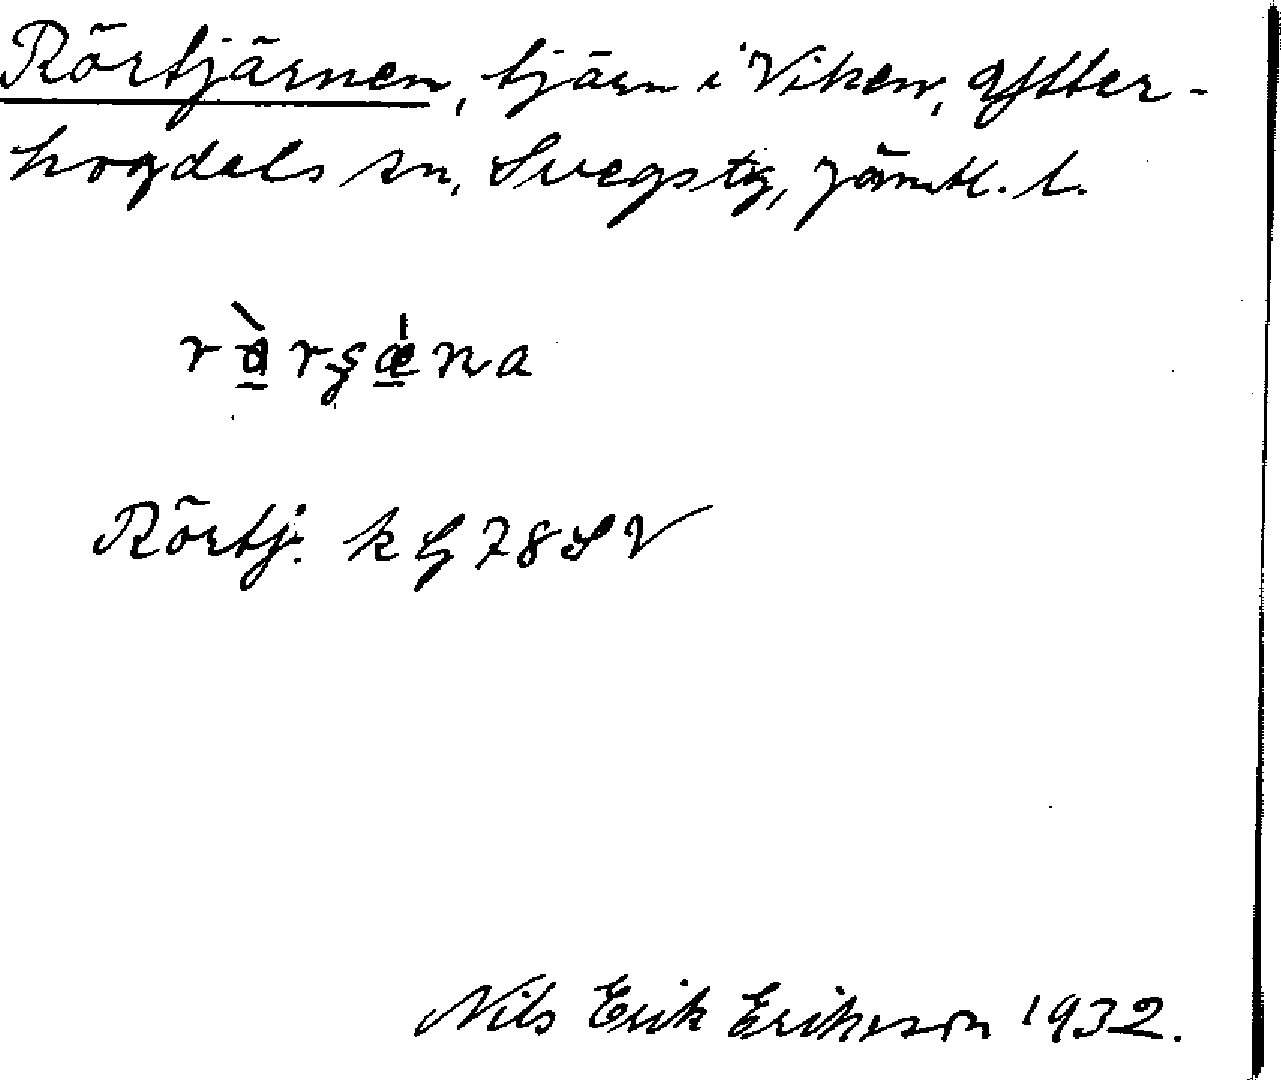 Rörtjärnen, tjärn i Viken, Ytter-
hogdals sn, Svegs tg, Jämtl. l.
Rörtj. k G 78 SV
Nils Erik Erikson 1932.